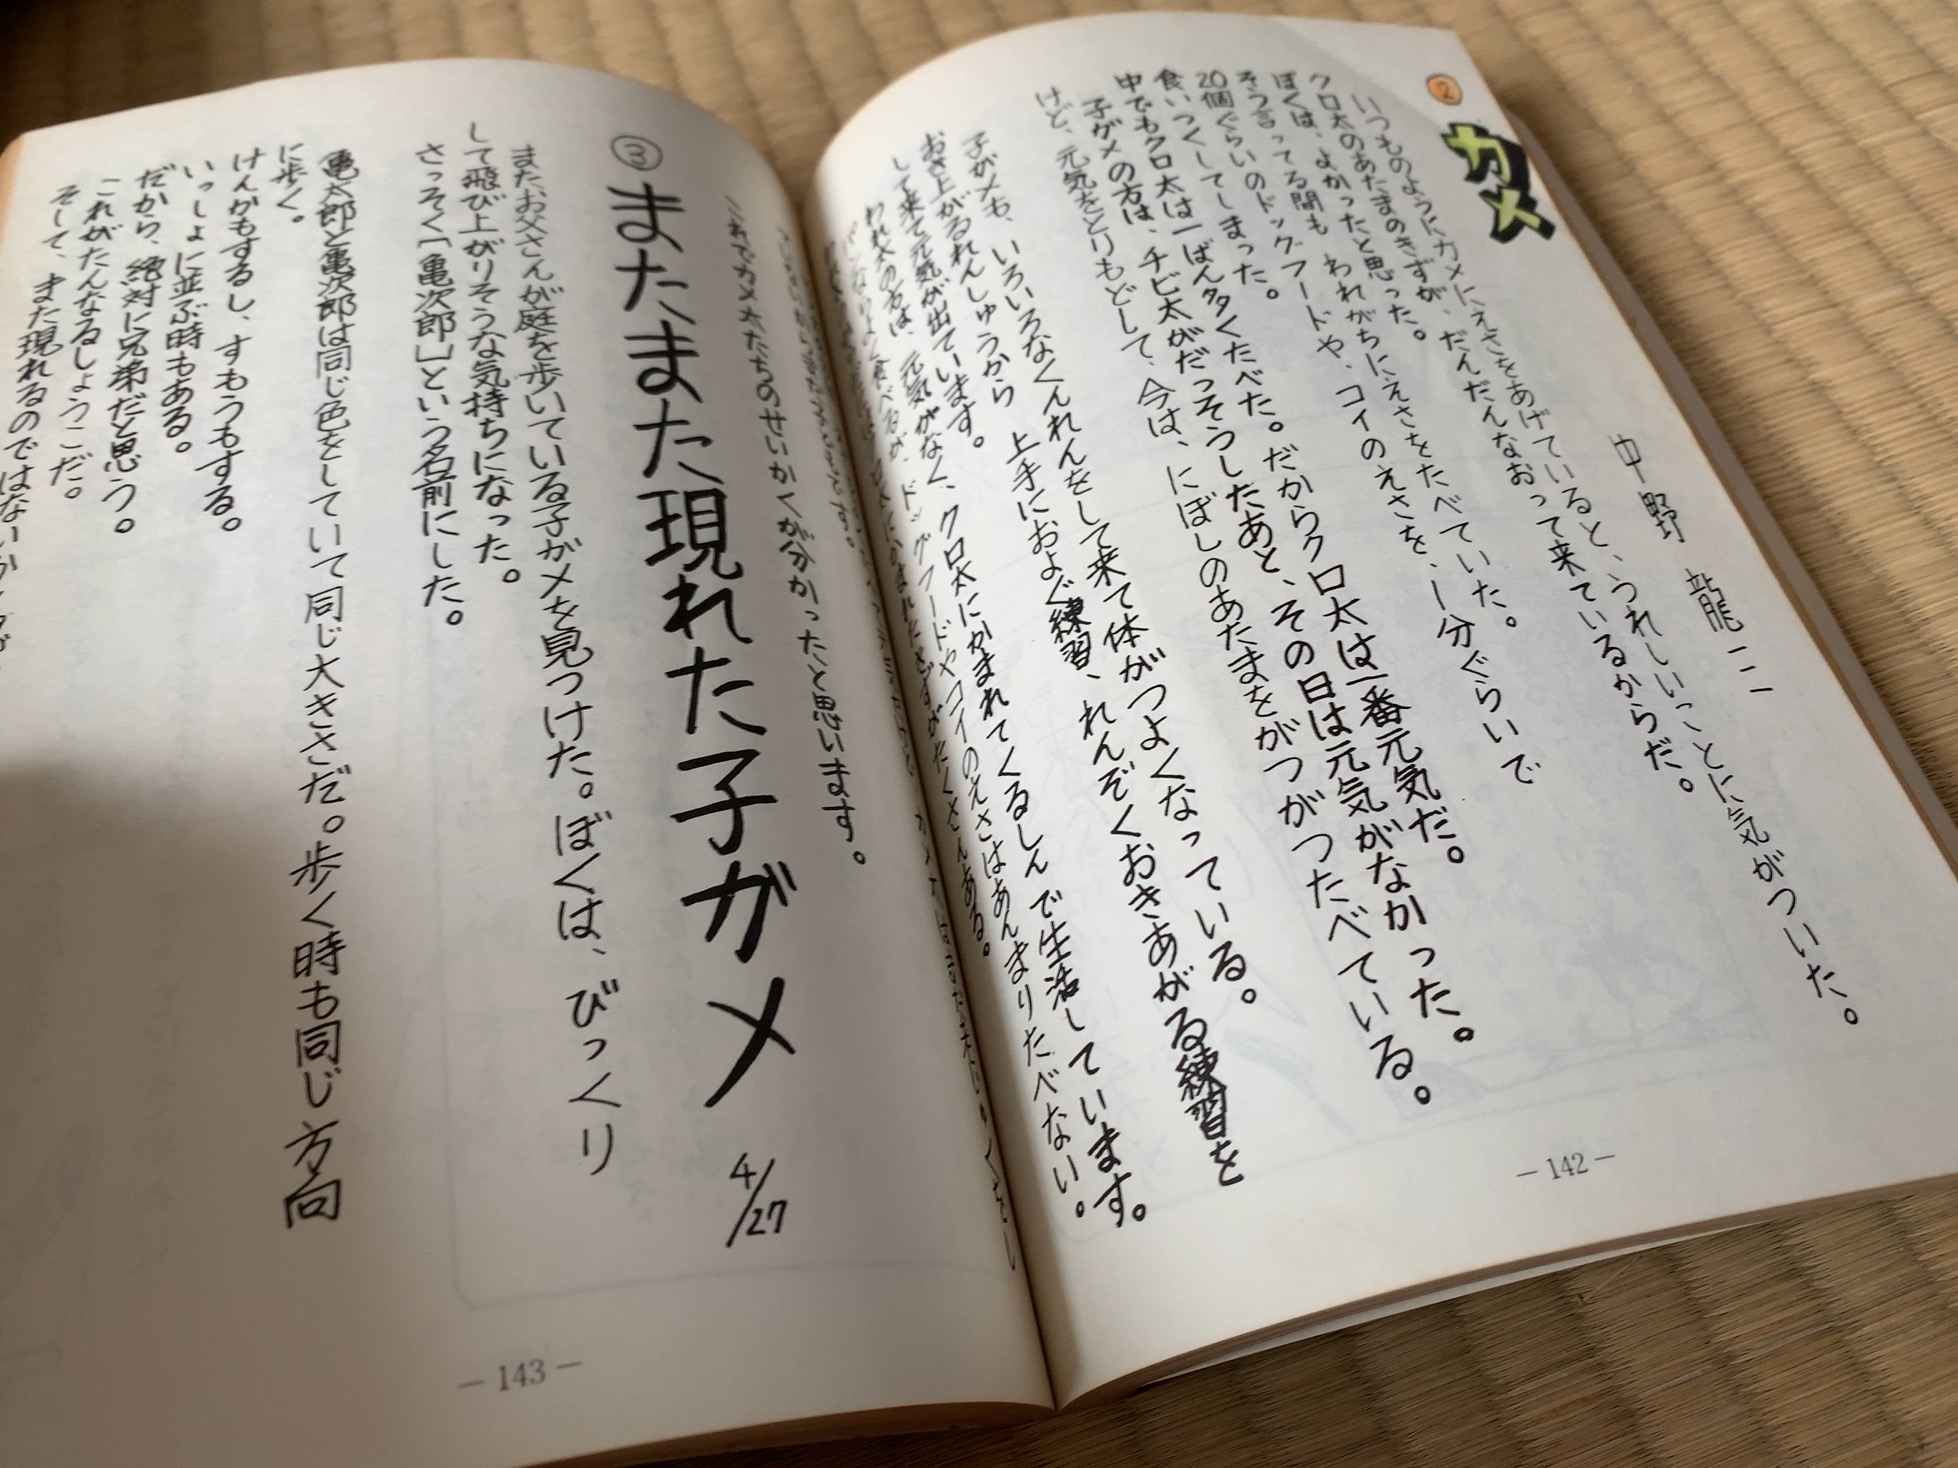 ②
カメ
中野 龍二
いつものようにカメにえさをあげていると、うれしいことに気がついた。
クロ太のあたまのきずが、だんだんなおって来ているからだ。
ぼくは、よかったと思った。
そう言ってる間も われがちにえさをたべていた。
20個ぐらいのドッグフードや、コイのえさを、1分ぐらいで
食いつくしてしまった。
中でもクロ太は一ばん多くたべた。だからクロ太は一番元気だ。
子ガメの方は、チビ太がだっそうしたあと、その日は元気がなかった。
けど、元気をとりもどして、今は、にぼしのあたまをがつがつたべている。
子ガメも、いろいろなくんれんをして来て体がつよくなっている。
おき上がるれんしゅうから 上手におよぐ練習、れんぞくおきあがる練習を
して来て元気が出ています。
われ太の方は、元気がなく、クロ太にかまれてくるしんで生活しています。
食べるが、ドッグフードやコイのえさはあんまりたべない。
これでカメたちのせいかくが分かったと思います。
— 142 —
③またまた現れた子ガメ 4/27
また、お父さんが庭を歩いている子ガメを見つけた。ぼくは、びっくり
して飛び上がりそうな気持ちになった。
さっそく「亀次郎」という名前にした。
亀太郎と亀次郎は同じ色をしていて同じ大きさだ。歩く時も同じ方向
に歩く。
けんかもするし、すもうもする。
いっしょに並ぶ時もある。
だから、絶対に兄弟だと思う。
これがたんなるしょうこだ。
そして、また現れるのではないか
— 143 —